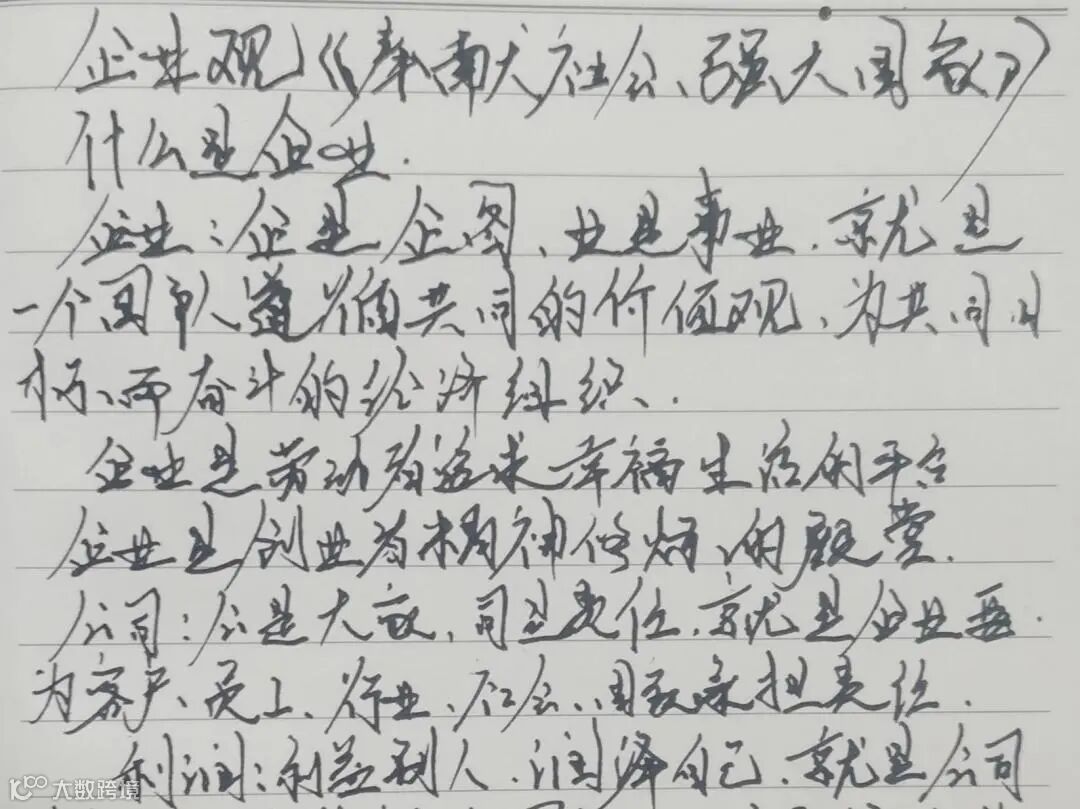 企业观《奉献大社会、强大国家》
什么是企业.
企业：企是企图、业是事业.就是
一个团队遵循共同的价值观、为共同目
标、而奋斗的经济组织、.
企业是劳动者追求幸福生活的平台
企业是创业者精神修炼、的殿堂.
公司：公是大家、司是责任.就是企业要.
为客户、员工、行业、社会、国家承担责任.
利润：利益别人.润泽自己、就是公司
大数跨境